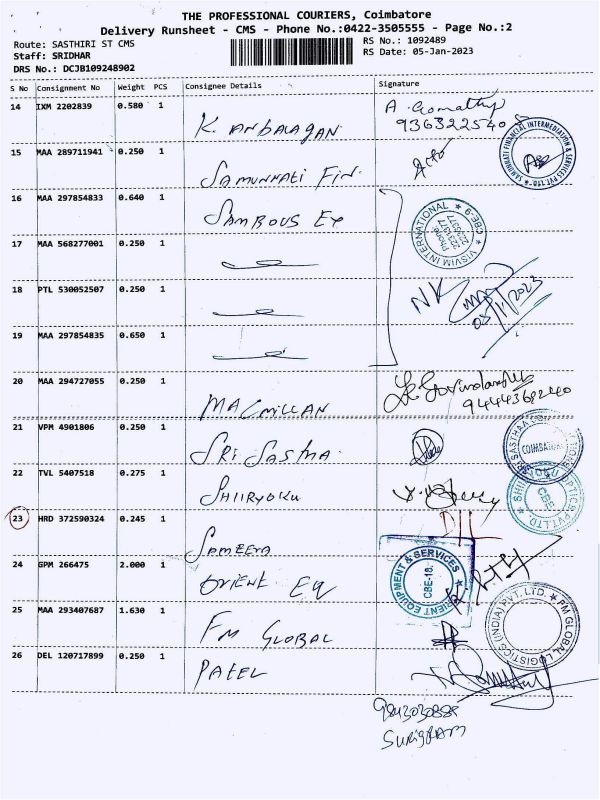 THE PROFESSIONAL COURIERS, Coimbatore
Delivery Runsheet - CMS - Phone No.:0422-3505555 - Page No.:2
Route: SASTHIRI ST CMS
Staff: SRIDHAR
DRS No.: DCJB109248902
RS No.: 1092489
RS Date: 05-Jan-2023
S No Consignment No Weight PCS Consignee Details Signature
14 IXM 2202839 0.580 1 K. ANBALAGAN A Gomathy
936322540
15 MAA 289711941 0.250 1 SAMUNNATI FIN.
SAMUNNATI FINANCIAL INTERMEDIATION & SERVICES PVT. LTD.
16 MAA 297854833 0.640 1 SAMBOUS EX
VISVIM INTERNATIONAL * CBE-9 *
Phone:
17 MAA 568277001 0.250 1
18 PTL 530052507 0.250 1 NK
05/1/2023
19 MAA 297854835 0.650 1
20 MAA 294727055 0.250 1 MACMILLAN
94443682240
21 VPM 4901806 0.250 1 SRI SASTHA.
COIMBATORE
22 TVL 5407518 0.275 1 SHIIRYOKU
CBE.
OPTICS PVT LTD
23 HRD 372590324 0.245 1 SAMEERA DIL
24 GPM 266475 2.000 1 ORIENT EQ
ORIENT EQUIPMENT & SERVICES
CBE-18.
25 MAA 293407687 1.630 1 FM GLOBAL
FM GLOBAL LOGISTICS (INDIA) PVT. LTD.
26 DEL 120717899 0.250 1 PATEL
9843030888